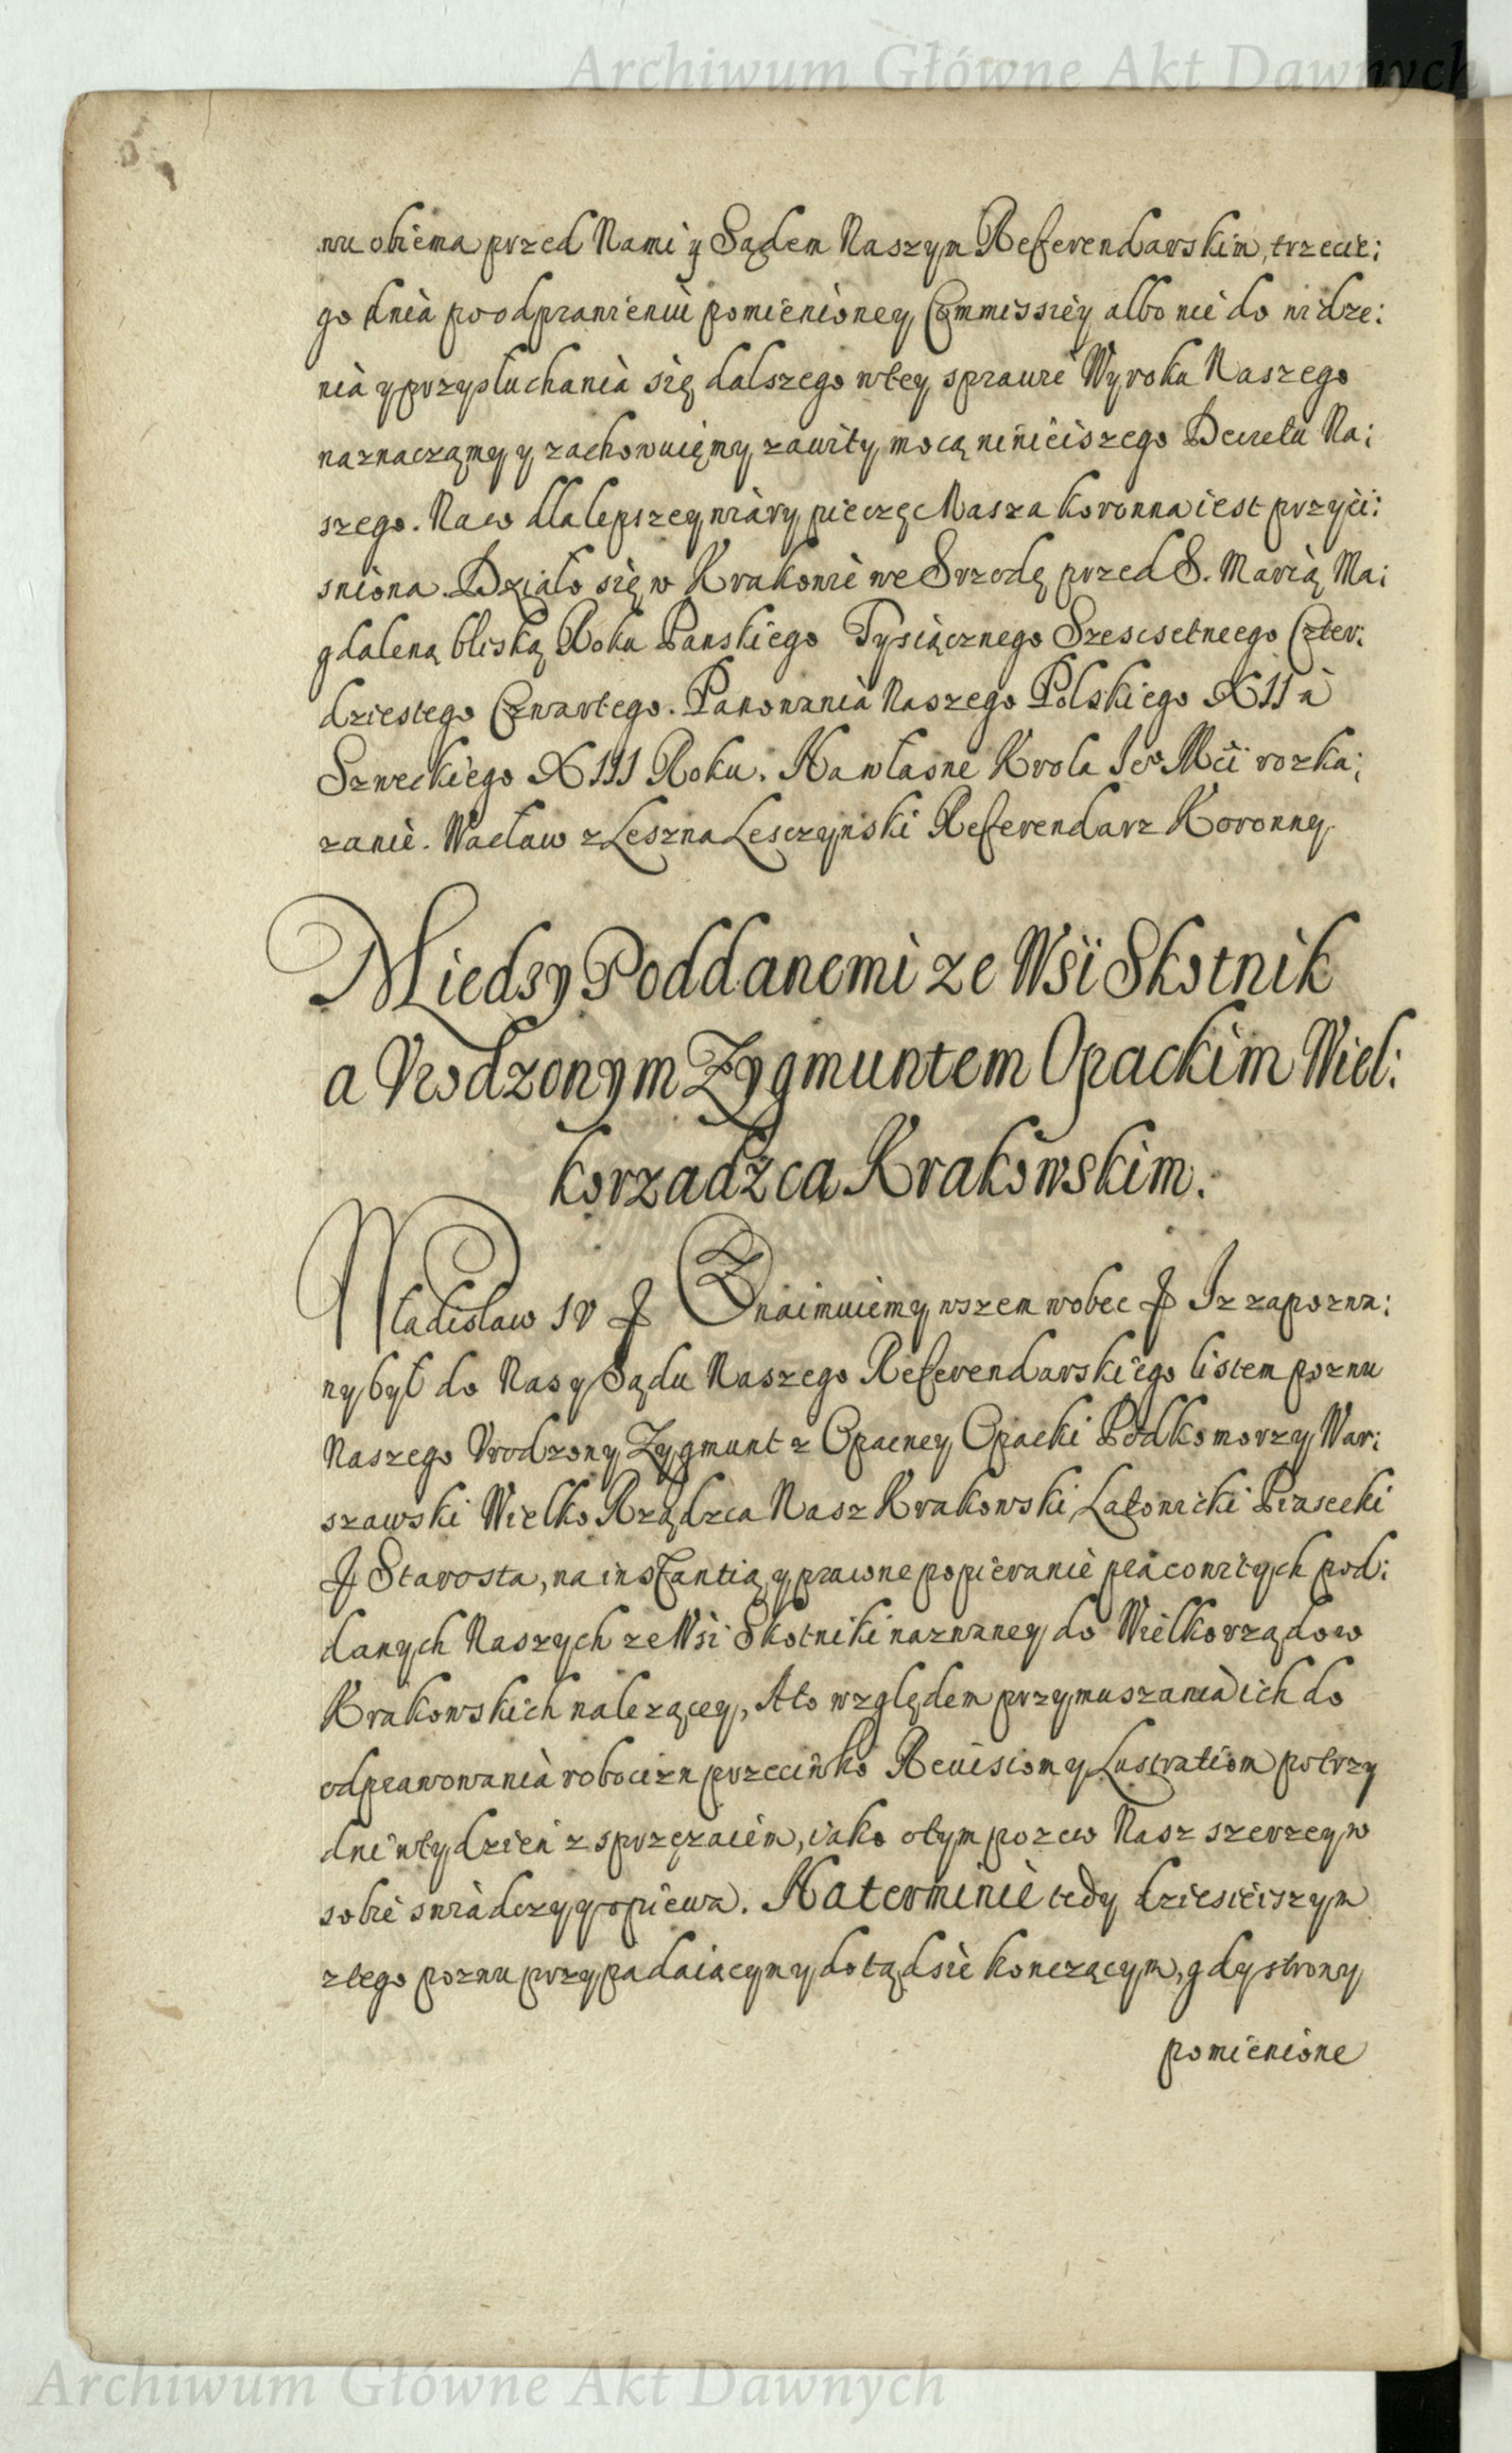 Archiwum Główne Akt Dawnych
wu obiema przed Nami y Sądem Naszym Referendarskim, trzecie:
go dnia po odprawieniu pomienioney Commissiey albo nie do widze:
nia y przysłuchania się dalszego w tey sprawie Wyroku Naszego
naznaczamy y zachowuięmy zawity mocą ninieiszego Decretu Na:
szego. Na co dla lepszey wiary pieczęc Nasza koronna iest przyci:
sniona. Działo się w Krakowie we Srzodę przed S. Marią Ma:
gdaleną bliską Roku Panskiego Tysiącznego Szescsetneego Czter:
dziestego Czwartego. Panowania Naszego Polskiego XII a
Szweckiego XIII Roku. Na własne Krola Je° Mci rozka:
zanie. Wacław z Leszna Lesczynski Referendarz Koronny.
Miedsy Poddanemi ze Wsi Skotnik
a Vrodzonym Zygmuntem Opackim Wiel:
korzadzca Krakowskim.
Władisław IV Znaimuiemy wszem wobec Iz zapozwa:
ny był do Nas y Sądu Naszego Referendarskiego listem pozwu
Naszego Vrodzony Zygmunt z Opacney Opacki Podkomorzy War:
szawski Wielko Rządzca Nasz Krakowski Latowicki Piasecki
Starosta, na instantią y prawne popieranie pracowitych pod:
danych Naszych ze Wsi Skotniki nazwaney do Wielkorządow
Krakowskich nalezącey, A to względem przymuszania ich do
odprawowania robocizn przeciwko Reuisiom y Lustratiom po trzy
dni w tydzień z sprzęzaiem, iako o tym pozew Nasz szerzey w
sobie swiadczy y opiewa. Na terminie tedy dzisieiszym
z tego pozwu przypadaiacym y dotąd sie konczącym, gdy strony
pomienione
Archiwum Główne Akt Dawnych